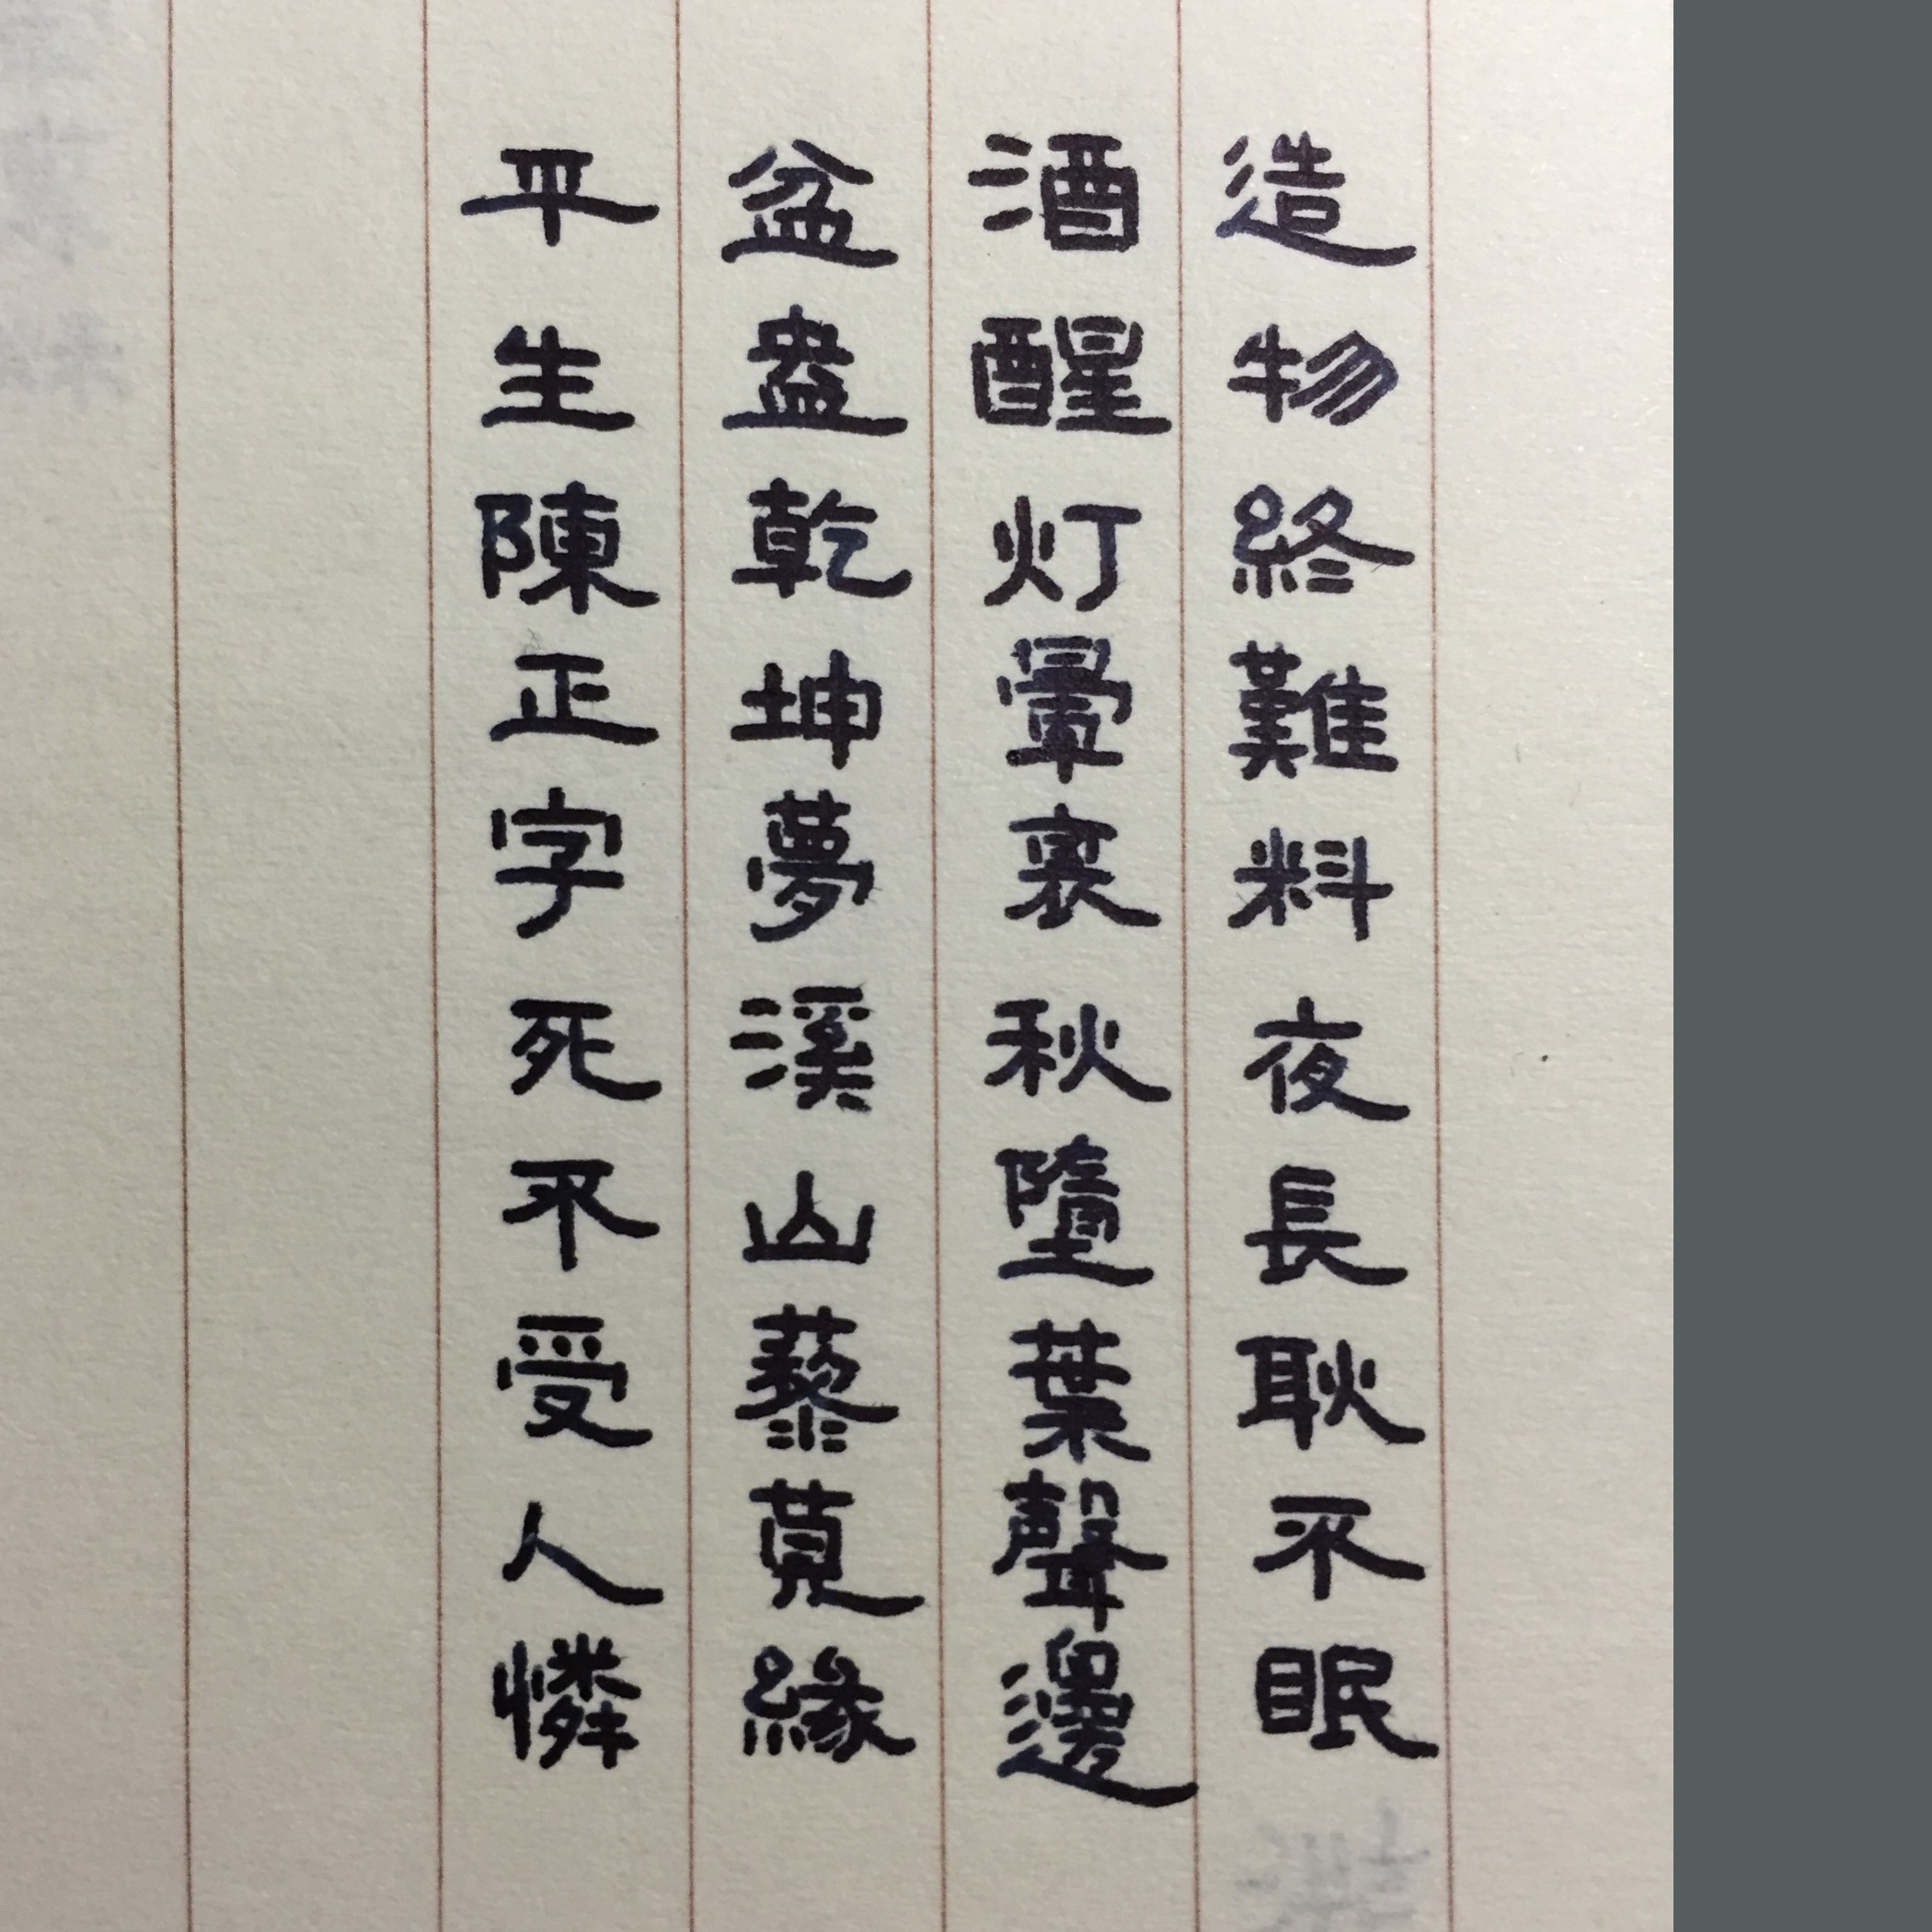 造物終難料夜長耿不眠
酒醒灯暈裏秋墮葉聲邊
盆盎乾坤夢溪山藜莧緣
平生陳正字死不受人憐